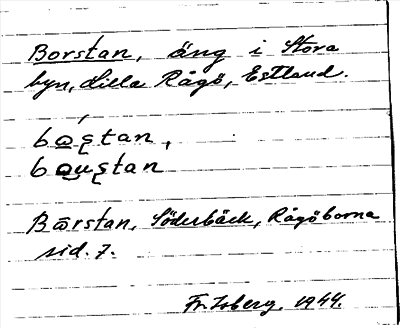 Borstan, äng i Stora
byn, Lilla Rågö, Estland.
bo̲ʂtan,
bo̲u̲ʂtan
Bōrstan, Söderbäck, Rågöborna
sid. 7.
Fr. Isberg. 1944.